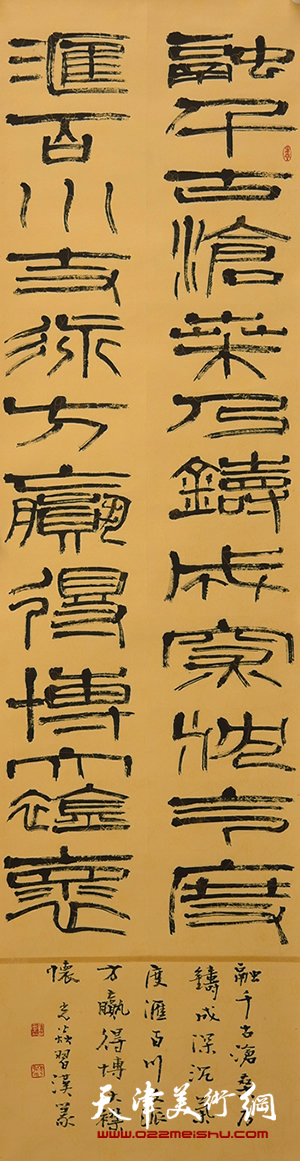 融千古滄桑乃鑄成深沈气度
滙百川支派方贏得博大襟褱
融千古滄桑乃
鑄成深沉氣
度滙百川支派
方贏得博大襟
懷 習漢篆
天津美術網
www.022meishu.com